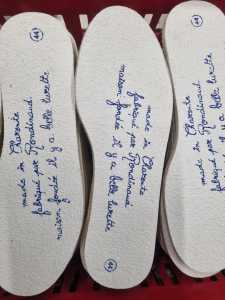 44
made in Charente
fabriqué par Rondinaud
maison fondée il y a belle lurette
made in Charente
fabriqué par Rondinaud
maison fondée il y a belle lurette
44
44
made in Charente
fabriqué par Rondinaud
il y a belle lurette